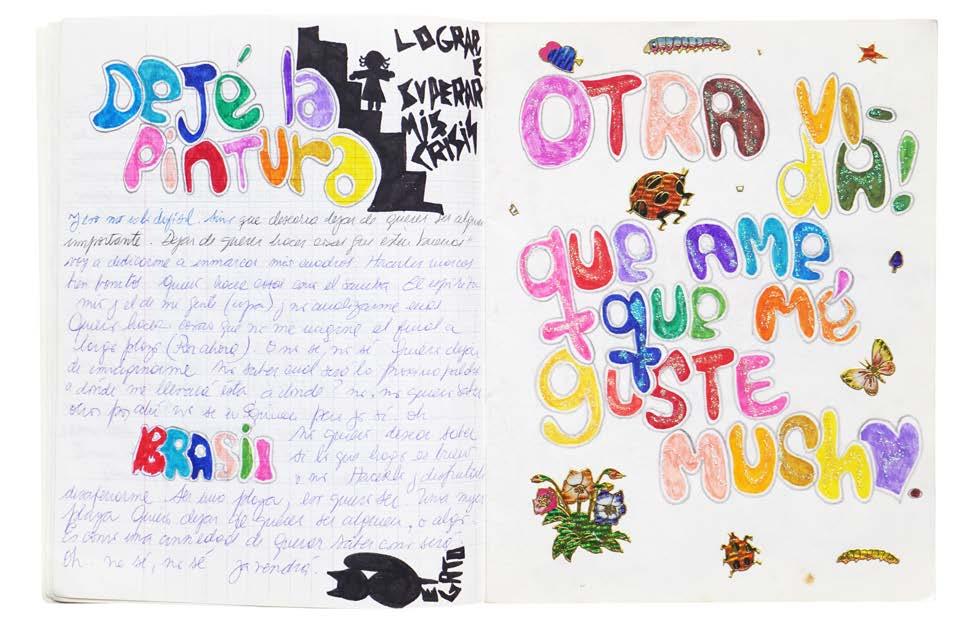 DEJÉ la
PINTURA
LOGRAR
E
SUPERAR
MIS
CRISIS
y eso no es difícil. Sino que desearía dejar de querer ser alguien
importante. Dejar de querer hacer cosas que estén buenas
voy a dedicarme a enmarcar mis cuadros. Hacerles marcos
bien bonitos. Quiero hacer cosas con el
mío y el de mi gente (ropa) y no analizarme más
Quiero hacer cosas que no me imagine el final a
largo plazo (Por ahora). O no se, no sé quiero dejar
de imaginarme. No saber cuál será lo próximo
a dónde me llevará ésta, a dónde? no, no quiero saber
otro no se si quiero pero yo sí. oh
BRASIL
No quiero desear saber
si lo que hago es bueno
o no. Hacerlo y disfrutarlo
Ser una playa, eso quiero ser. Una mujer
playa Quiero dejar de querer ser alguien, o algo.
Es como una ansiedad de querer saber como será.
Oh. no se, no sé ya vendrá.
EL GATO
OTRA VI-
DA!
que AME
que ME
GUSTE
MUCHO